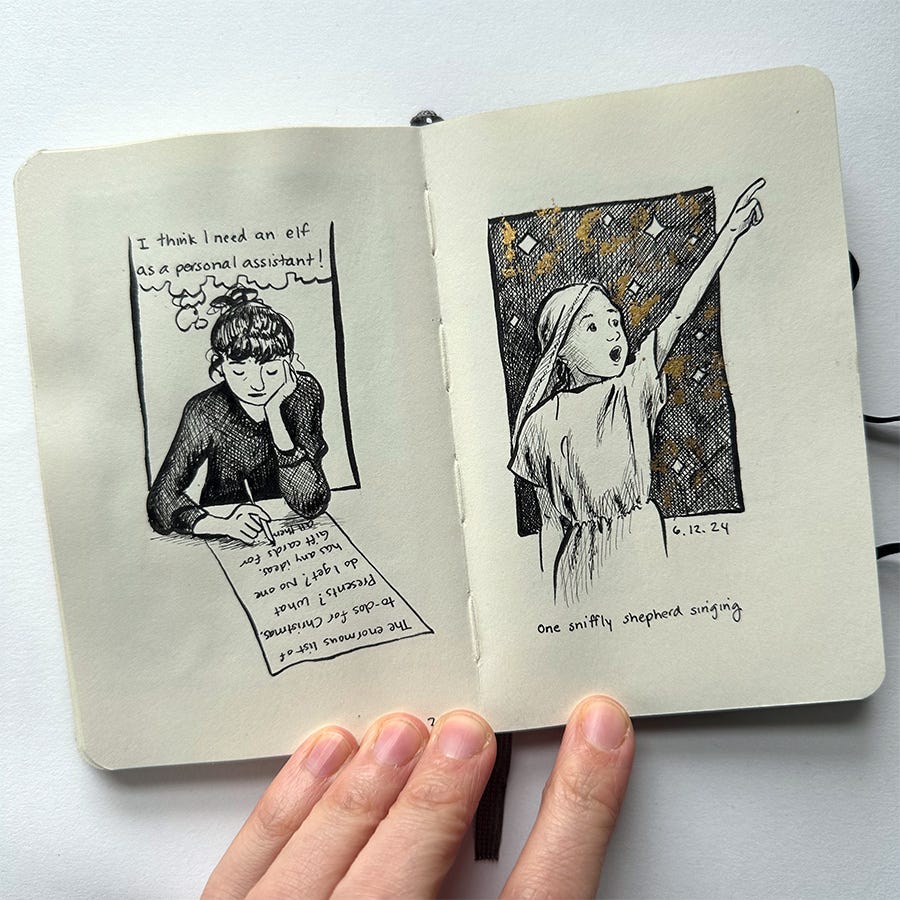 I think I need an elf
as a personal assistant!
The enormous list of
to-dos for Christmas.
Presents? What
do I get? No one
has any ideas.
Gift cards for
all then
6.12.24
One sniffly shepherd singing